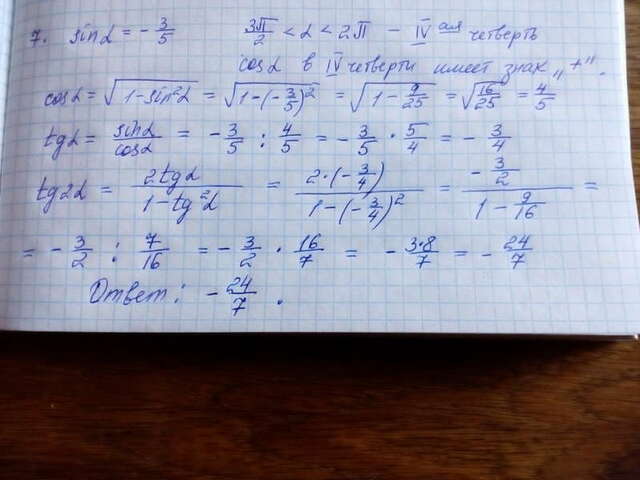 7. sinα = - 3/5   3π/2 < α < 2π - IV ая четверть
cosα в IV четверти имеет знак „+".
cosα = √(1-sin²α) = √(1-(-3/5)²) = √(1-9/25) = √(16/25) = 4/5
tgα = sinα/cosα = -3/5 : 4/5 = -3/5 · 5/4 = -3/4
tg2α = 2tgα/(1-tg²α) = 2·(-3/4)/(1-(-3/4)²) = (-3/2)/(1-9/16) =
= -3/2 : 7/16 = -3/2 · 16/7 = -3·8/7 = -24/7
Ответ: -24/7.